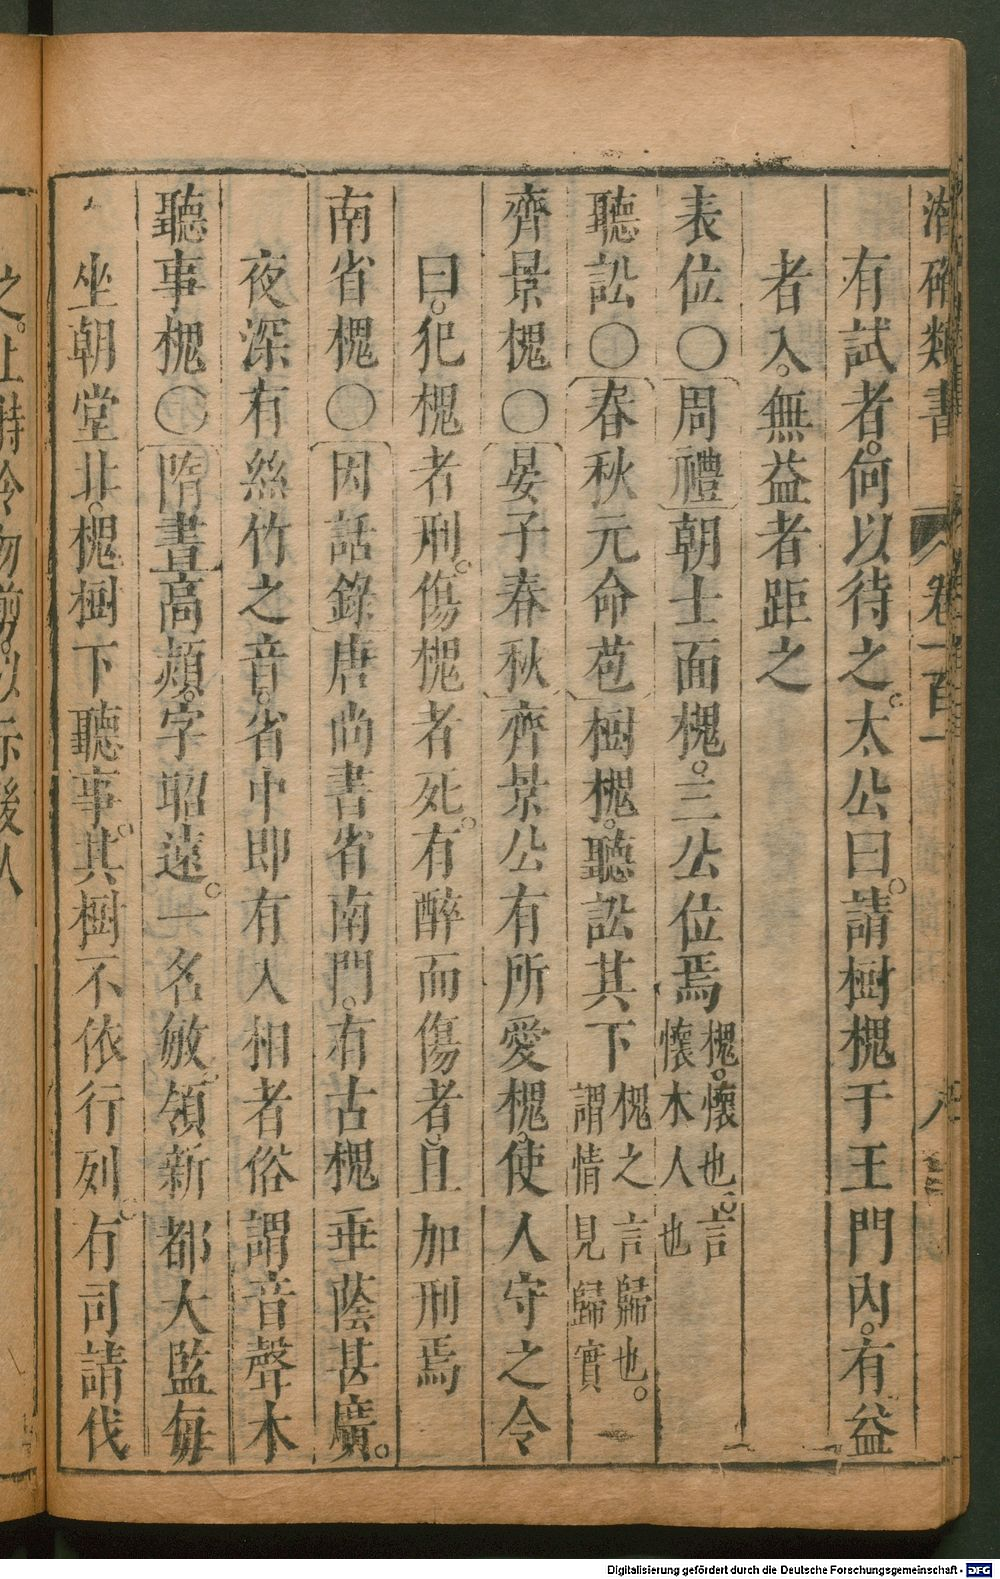 潛確類書 卷一百一 八
有試者。何以待之。太公曰。請樹槐于王門內。有益
者入。無益者距之
表位〇周禮朝士面槐。三公位焉槐。懷也。言懷木人也
聽訟〇春秋元命苞樹槐。聽訟其下槐之言歸也。謂情見歸實
齊景槐〇晏子春秋齊景公有所愛槐。使人守之令
曰。犯槐者刑。傷槐者死。有醉而傷者。且加刑焉
南省槐〇因話錄唐尚書省南門。有古槐垂蔭甚廣。
夜深有絲竹之音。省中即有入相者俗謂音聲木
聽事槐〇隋書高熲。字昭遠。一名敏。領新都大監每
坐朝堂北。槐樹下聽事。其樹不依行列。有司請伐
之。上特令勿剪。以示後人
Digitalisierung gefördert durch die Deutsche Forschungsgemeinschaft - DFG